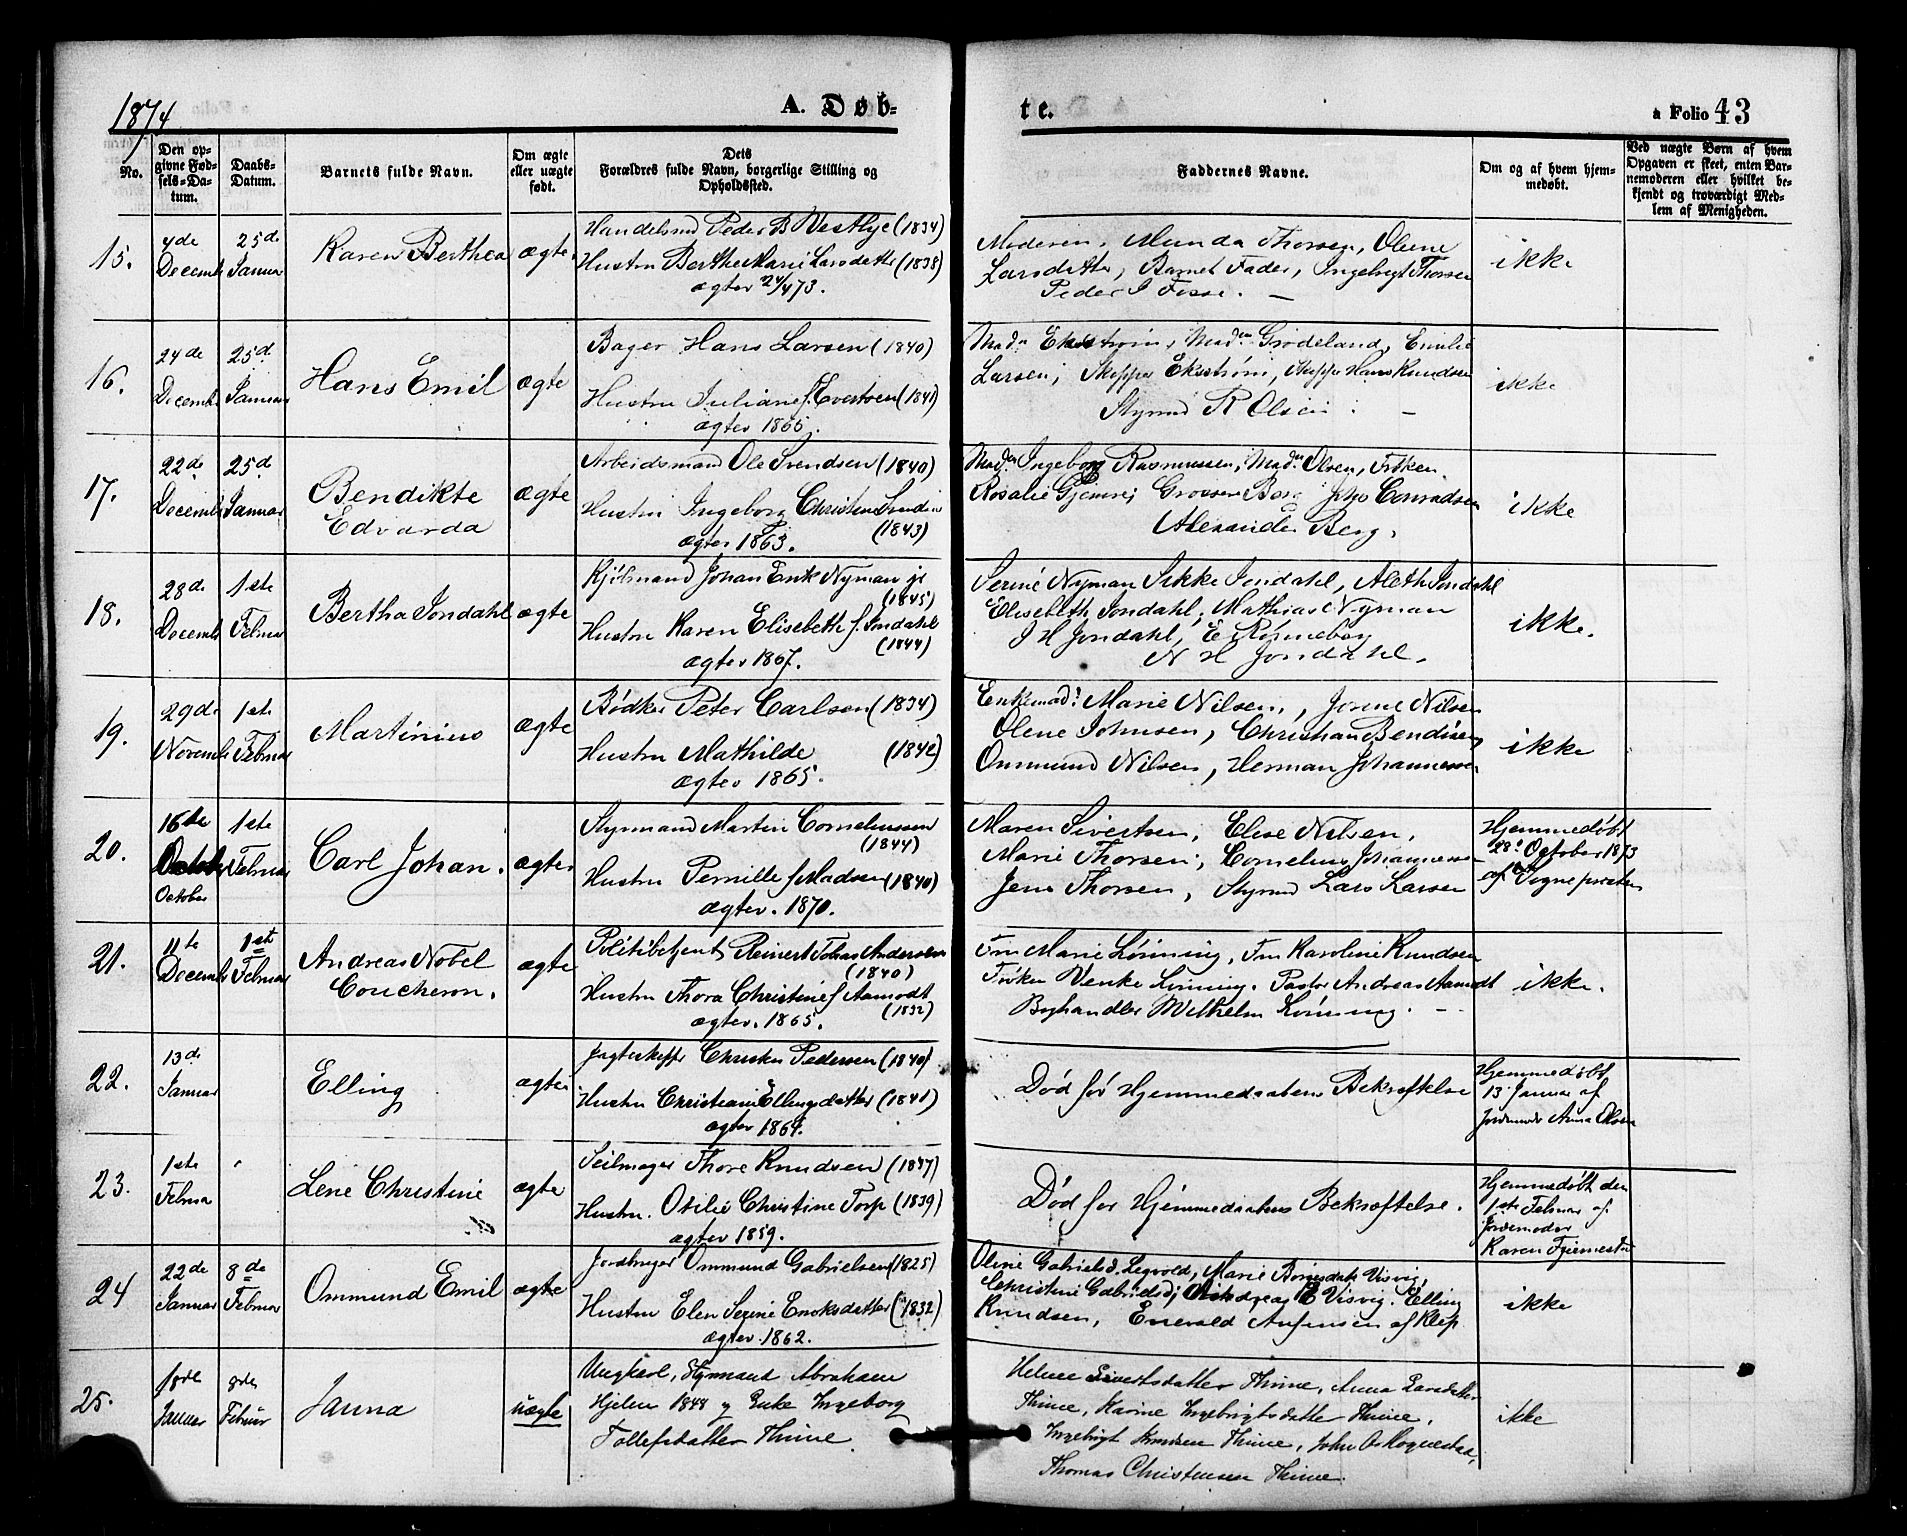 1874
A. Døb-
te.
a Folio 43
No.
Den op-
givne Fød-
sels-Da-
tum.
Daabs-
Datum.
Barnets fulde Navn.
Om ægte
eller uægte
født.
Dets
Forældres fulde Navn, borgerlige Stilling og
Opholdssted.
Faddernes Navne.
Om og af hvem hjem-
medøbt.
Ved uægte Børn af hvem
Opgaven er skeet, enten Bar-
nemoderen eller hvilket be-
kjendt og troværdigt Med-
lem af Menigheden.
15.
4de
Decemb
25de
Januar
Karen Berthea
ægte
Handelsmd Peder B Vestlye (1834)
Hustru Berthe Marie Larsdatter (1838)
ægtev 24/4 73.
Moderen, Munda Thorsen, Olene
Larsdatter, Barnets Fader, Ingebregt Thorsen
Peder J Fosse. —
ikke
16.
24de
Decemb
25d
Januar
Hans Emil
ægte
Bager Hans Larsen (1840)
Hustru Juliane f. Evertsen (1841)
ægtev 1865.
Mad. Ekstrøm, Madm Grødeland, Emilie
Larsen, Skipper Ekstrøm, Skipper Hans Knudsen
Styrmd R Olsen. —
ikke
17.
22de
Decemb
25d
Januar
Bendikte
Edvarda
ægte
Arbeidsmand Ole Svendsen (1840)
Hustru Ingeborg Christine
(1843)
ægtev 1863.
Madm Ingeborg Rasmussen, Madm Olsen, Frøken
Rosalie Gjemre, Grosserer Berg, Johs Conradsen
Alexander Berg.
ikke
18.
28de
Decemb
1ste
Februar
Bertha Jondahl
ægte
Kjølmand Johan Erik Nyman jr
(1845)
Hustru Karen Elisebeth f. Jondahl
(1844)
ægtev 1867.
Serine Nyman, Sikke Jondahl, Aleth Jondahl
Elisebeth Jondahl, Mathias Nyman
J H Jondahl, E Rønneberg
N H Jondahl.
ikke.
19.
29de
Novemb
1ste
Februar
Martinius
ægte
Bødker Peter Carlsen (1834)
Hustru Mathilde (1842)
ægtev 1865.
Enkemad: Marie Nilsen, Jorine Nilsen
Olene Johnsen, Christian Bendixen,
Ommund Nilsen, Herman Johannessen
ikke
20.
16de
October
October
1ste
Februar
Carl Johan.
ægte
Styrmand Martin Corneliussen
(1844)
Hustru Pernille f Madsen (1840)
ægtev. 1870.
Maren Sivertsen, Elise Nilsen,
Marie Thorsen, Cornelius Johannessen
Jens Thorsen, Styrmd Lars Larsen
Hjemmedøbt
28. October 1873
af Sognepresten
21.
11te
Decemb
1ste
Februar
Andreas Nobel
Coucheron.
ægte
Politibetjent Reinert Tobias Andersen
(1840)
Hustru Thora Christine f Aamodt
(1832)
ægtev. 1865.
Fru Marie Lønning, Fru Karoline Knudsen
Frøken Venke Lønning. Pastor Andreas Aamodt
Boghandler Wilhelm Lønning. —
ikke.
22.
13de
Januar
Elling
ægte
Jagteskipp Christen Pedersen (1840)
Hustru Christiane Ellingsdatter (1841)
ægtev 1864.
Død før Hjemmedaabens Bekræftelse
Hjemmedøbt
13 Januar af
Jordemoder Anna Olsen
23.
1ste
Februar
Lene Christine
ægte
Seilmager Thore Knudsen (1837)
Hustru. Otilie Christine Torp (1839)
ægtev 1859.
Død før Hjemmedaabens Bekræftelse.
Hjemmedøbt den
1ste Februar af
Jordemoder
Karen Fjermestad
24
22de
Januar
8de
Februar
Ommund Emil
ægte
Jordbruger Ommund Gabrielsen (1825)
Hustru Elen Serine Enoksdatter (1832)
ægtev. 1862.
Oline Gabrielsd. Legvold, Marie Visvig,
Christine Gabrielsd, Andreas E Visvig. Elling
Knudsen, Enevold af Klep
ikke
25.
Januar
8de
Februar
Janna
uægte
Ungkarl, Styrmand Abraham
Hjelm 1844 og Enke Ingeborg
Tollefsdatter Thime
Helene Sivertsdatter Thime, Anna Larsdatter
Thime, Karine Ingebrigtsdatter Thime,
Ingebrigt Knudsen Thime, John
Thomas Christensen Thime.
ikke